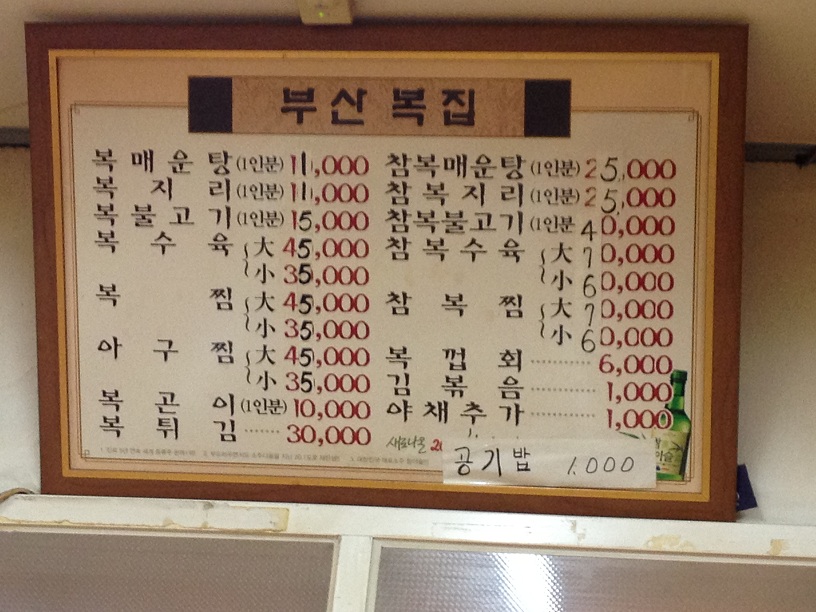 부산복집
복매운탕(1인분) 11,000
복지리(1인분) 11,000
복불고기(1인분) 15,000
복수육 大 45,000
小 35,000
복찜 大 45,000
小 35,000
아구찜 大 45,000
小 35,000
복곤이(1인분) 10,000
복튀김 ······ 30,000
참복매운탕(1인분) 25,000
참복지리(1인분) 25,000
참복불고기(1인분 40,000
참복수육 大 70,000
小 60,000
참복찜 大 70,000
小 60,000
복껍회 ············ 6,000
김볶음 ············ 1,000
야채추가 ············ 1,000
새로나온 20
공기밥 1.000